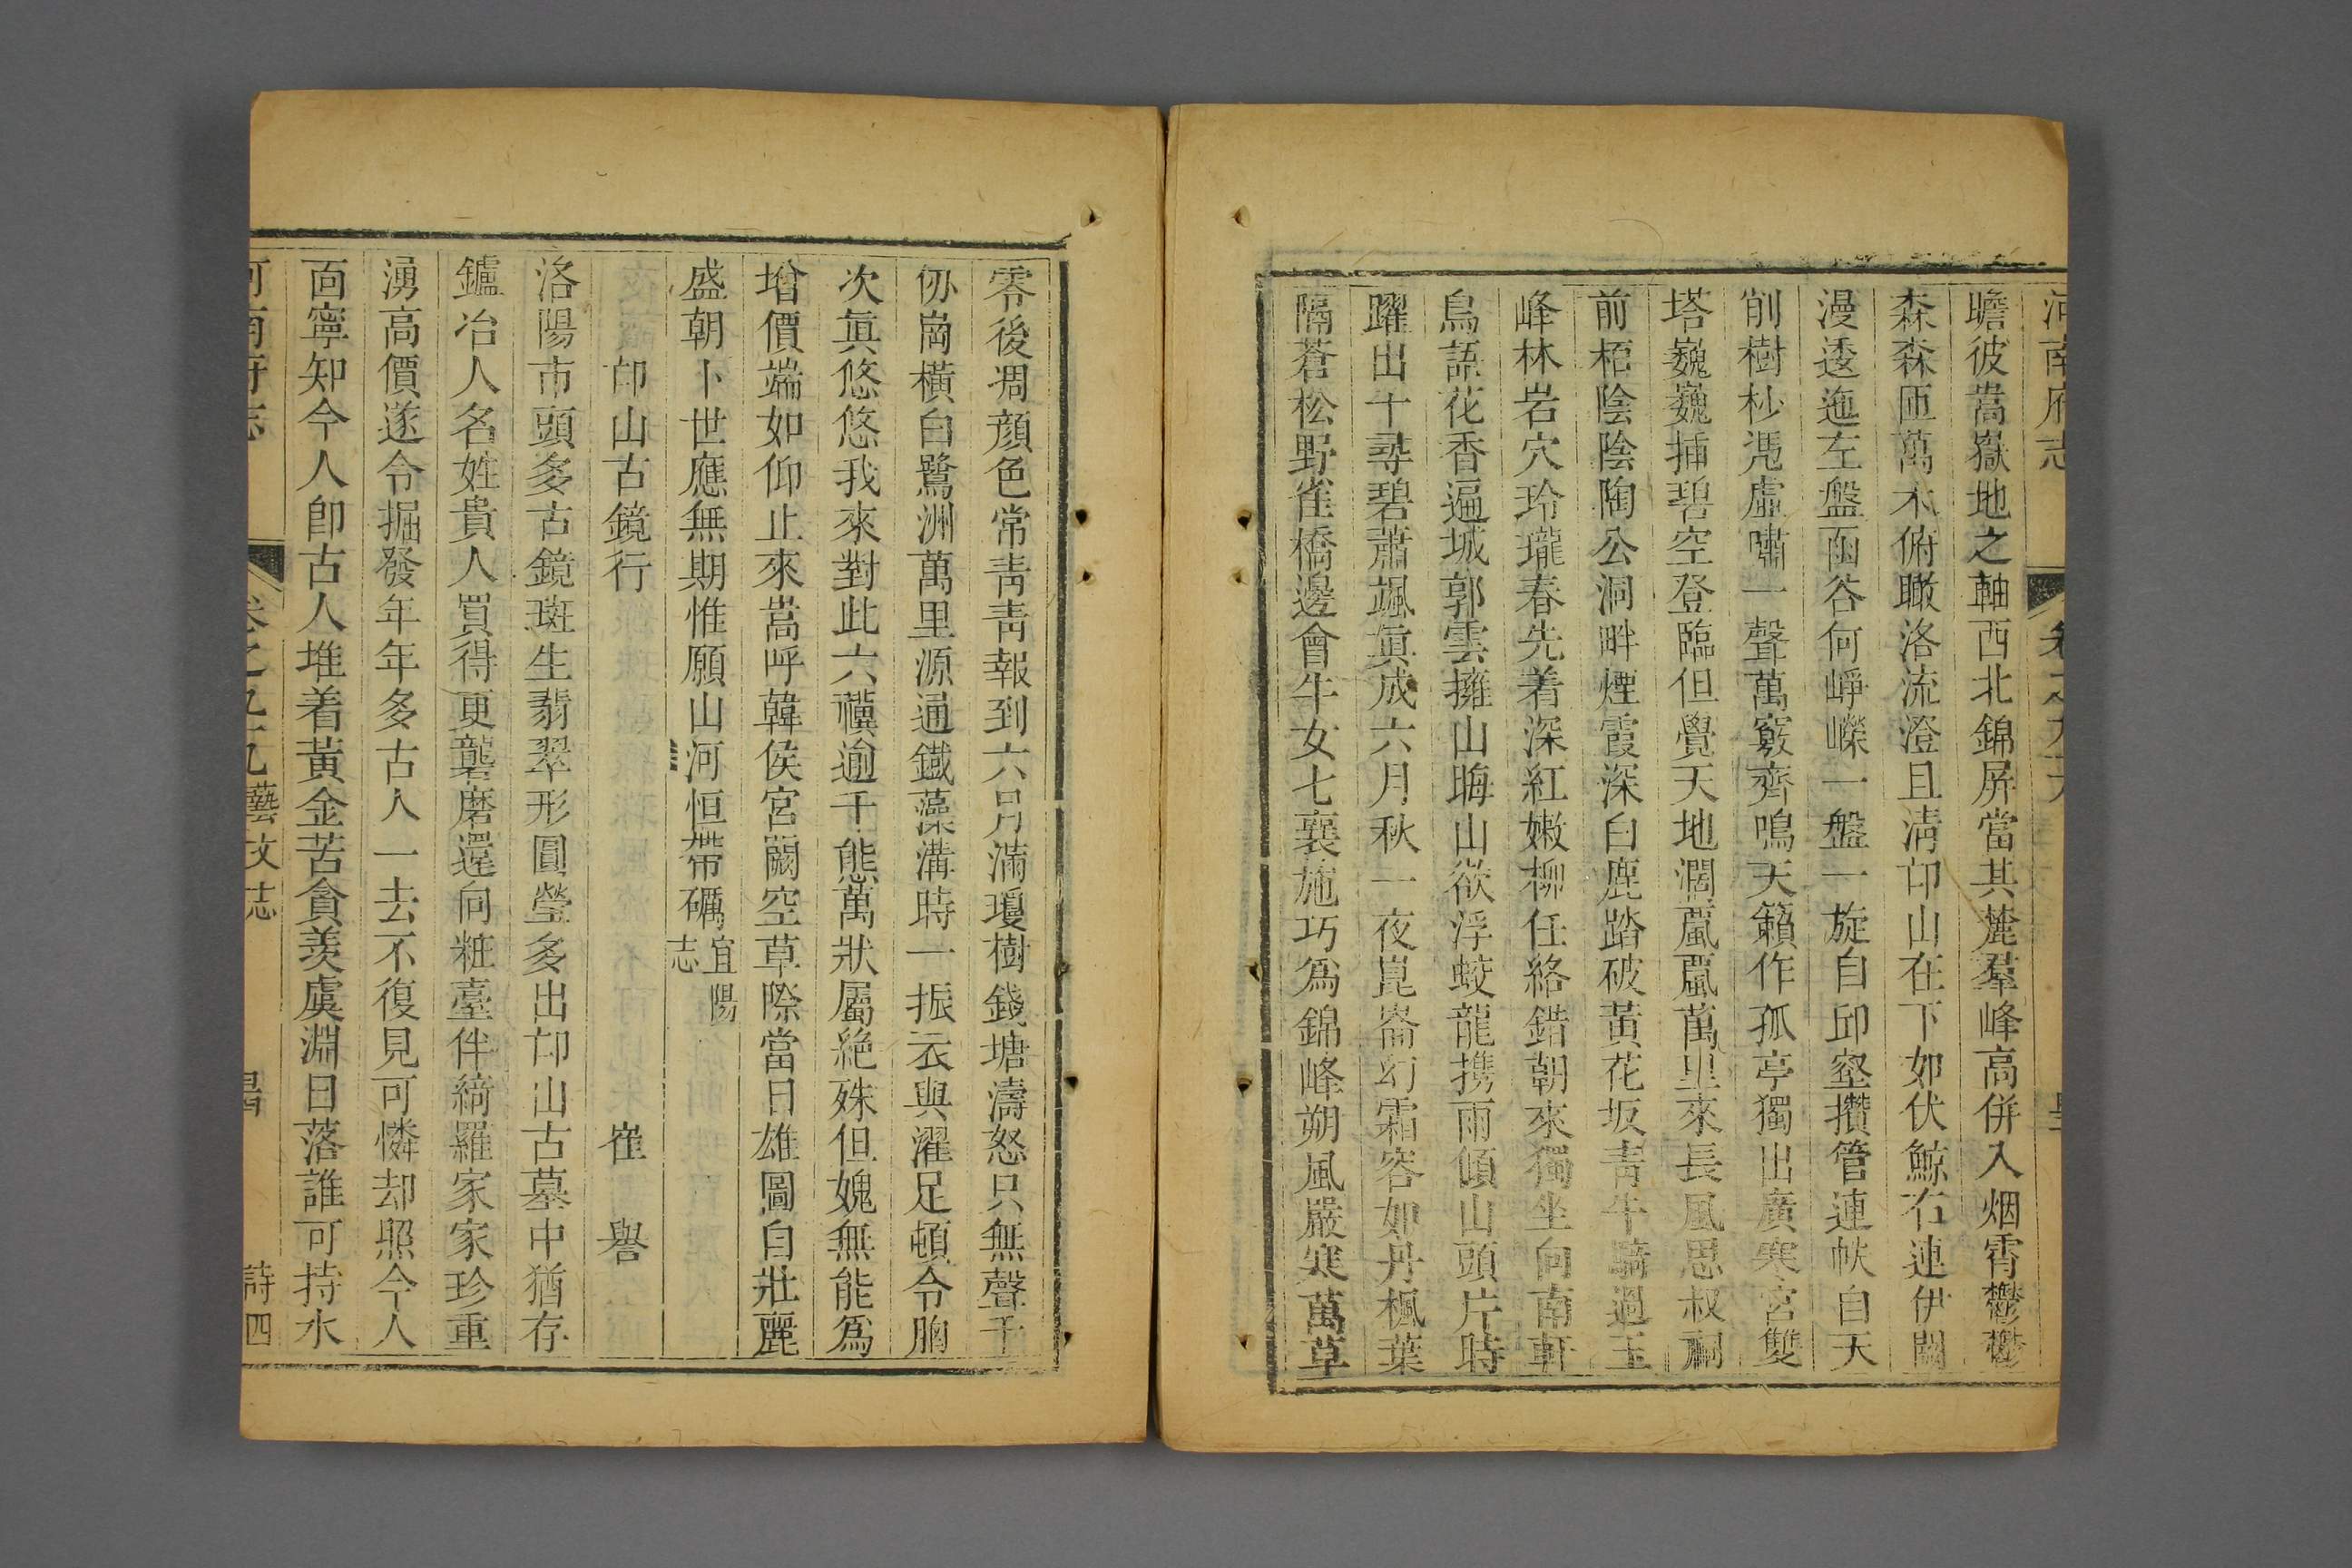 河南府志 卷之九十
瞻彼嵩嶽地之軸西北錦屏當其麓羣峰高併入烟霄鬱鬱
森森匝萬木俯瞰洛流澄且淸邙山在下如伏鯨右連伊闕
漫逶迤左盤函谷何崢嶸一盤一旋自邱壑攢管連帙自天
削樹杪凴虛嘯一聲萬竅齊鳴天籟作孤亭獨出廣寒宮雙
塔巍巍揷碧空登臨但覺天地濶颪颪萬里來長風思叔嗣
前栢陰陰陶公洞畔煙霞深白鹿踏破黃花坂靑牛騎過玉
峰林岩穴玲瓏春先着深紅嫩柳任絡錯朝來獨坐向南軒
鳥語花香逼城郭雲擁山晦山欲浮蛟龍携雨傾山頭片時
躍出千尋碧蕭颯眞成六月秋一夜崑崙幻霜客如丹楓葉
隔蒼松野雀橋邊會牛女七襄施巧爲錦峰朔風嚴寒萬草
零後凋顔色常靑靑報到六月滿瓊樹錢塘濤怒只無聲千
仞崗橫白鷺洲萬里源通鐵藻溝時一振衣與濯足頓令胸
次眞悠悠我來對此六襶逾千態萬狀屬絶殊但媿無能爲
增價端如仰止來嵩呼韓侯宮闕空草際當日雄圖自壯麗
盛朝卜世應無期惟願山河恒帶礪宜陽志
邙山古鏡行 崔譽
洛陽市頭多古鏡斑生翡翠形圓瑩多出邙山古墓中猶存
鑪冶人名姓貴人買得更礱磨還向粧臺伴綺羅家家珍重
湧高價遂令掘發年年多古人一去不復見可憐却照今人
面寧知今人卽古人堆着黃金苦貪羡虞淵日落誰可持水
河南府志 卷之九十九藝文志 詩四